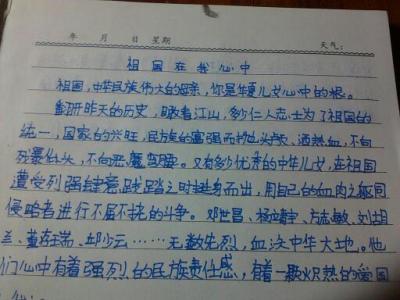 年 月 日 星期 天气:
祖国在我心中
祖国,中华民族伟大的母亲,你是华夏儿女心中的根。
翻开昨天的历史,瞰看江山,多少仁人志士为了祖国的
统一,国家的兴旺,民族的富强而抛头颅、洒热血,不向
列暴低头,不向恶魔弯腰。又有多少优秀的中华儿女,在祖国
遭受列强肆意践踏之时挺身而出,用自己的血肉之躯同
侵略者进行不屈不挠的斗争。邓世昌、杨靖宇、方志敏、刘胡
兰、董存瑞、邱少云……无数先烈,血洒中华大地。他
们心中有着强烈的民族责任感,有着一颗火热的爱国